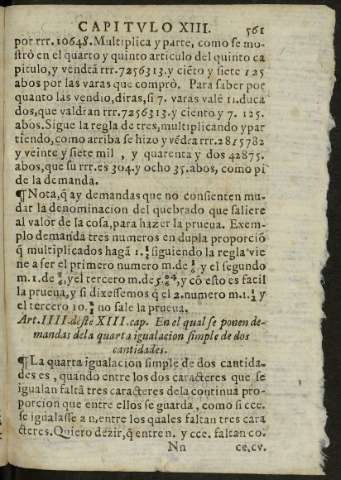 CAPITVLO XIII. 561
por rrr. 10648. Multiplica y parte, como se mo-
strò en el quarto y quinto articulo del quinto ca
pitulo, y vendrã rrr. 7256313. y ciẽto y siete 125
abos por las varas que comprò. Para saber por
quanto las vendio, diras, si 7. varas valẽ 11. duca
dos, que valdran rrr. 7256313. y ciento y 7. 125.
abos. Sigue la regla de tres, multiplicando y par
tiendo, como arriba se hizo y vẽdra rrr. 2815782
y veinte y siete mil, y quarenta y dos 42875.
abos, que su rrr. es 304. y ocho 35. abos, como pi
de la demanda.
¶ Nota, q̃ ay demandas que no consienten mu-
dar la denominacion del quebrado que saliere
al valor de la cosa, para hazer la prueua. Exem-
plo demanda tres numeros en dupla proporciõ
q̃ multiplicados hagã 1. siguiendo la regla vie
ne a ser el primero numero m. de y el segundo
m. 1. de , y el tercero m. de 5. , y cõ esto es facil
la prueua, y si dixessemos q̃ el 2. numero m. 1. y
el tercero 10. no sale la prueua.
Art. IIII. deste XIII. cap. En el qual se ponen de-
mandas de la quarta igualacion simple de dos
cantidades.
¶ La quarta igualacion simple de dos cantida-
des es, quando entre los dos caracteres que se
igualan faltã tres caracteres de la continua pro-
porcion que entre ellos se guarda, como si cce.
se igualasse a n. entre los quales faltan tres cara
cteres. Quiero dezir, q̃ entre n. y cce. faltan co.
Nn ce. cu.